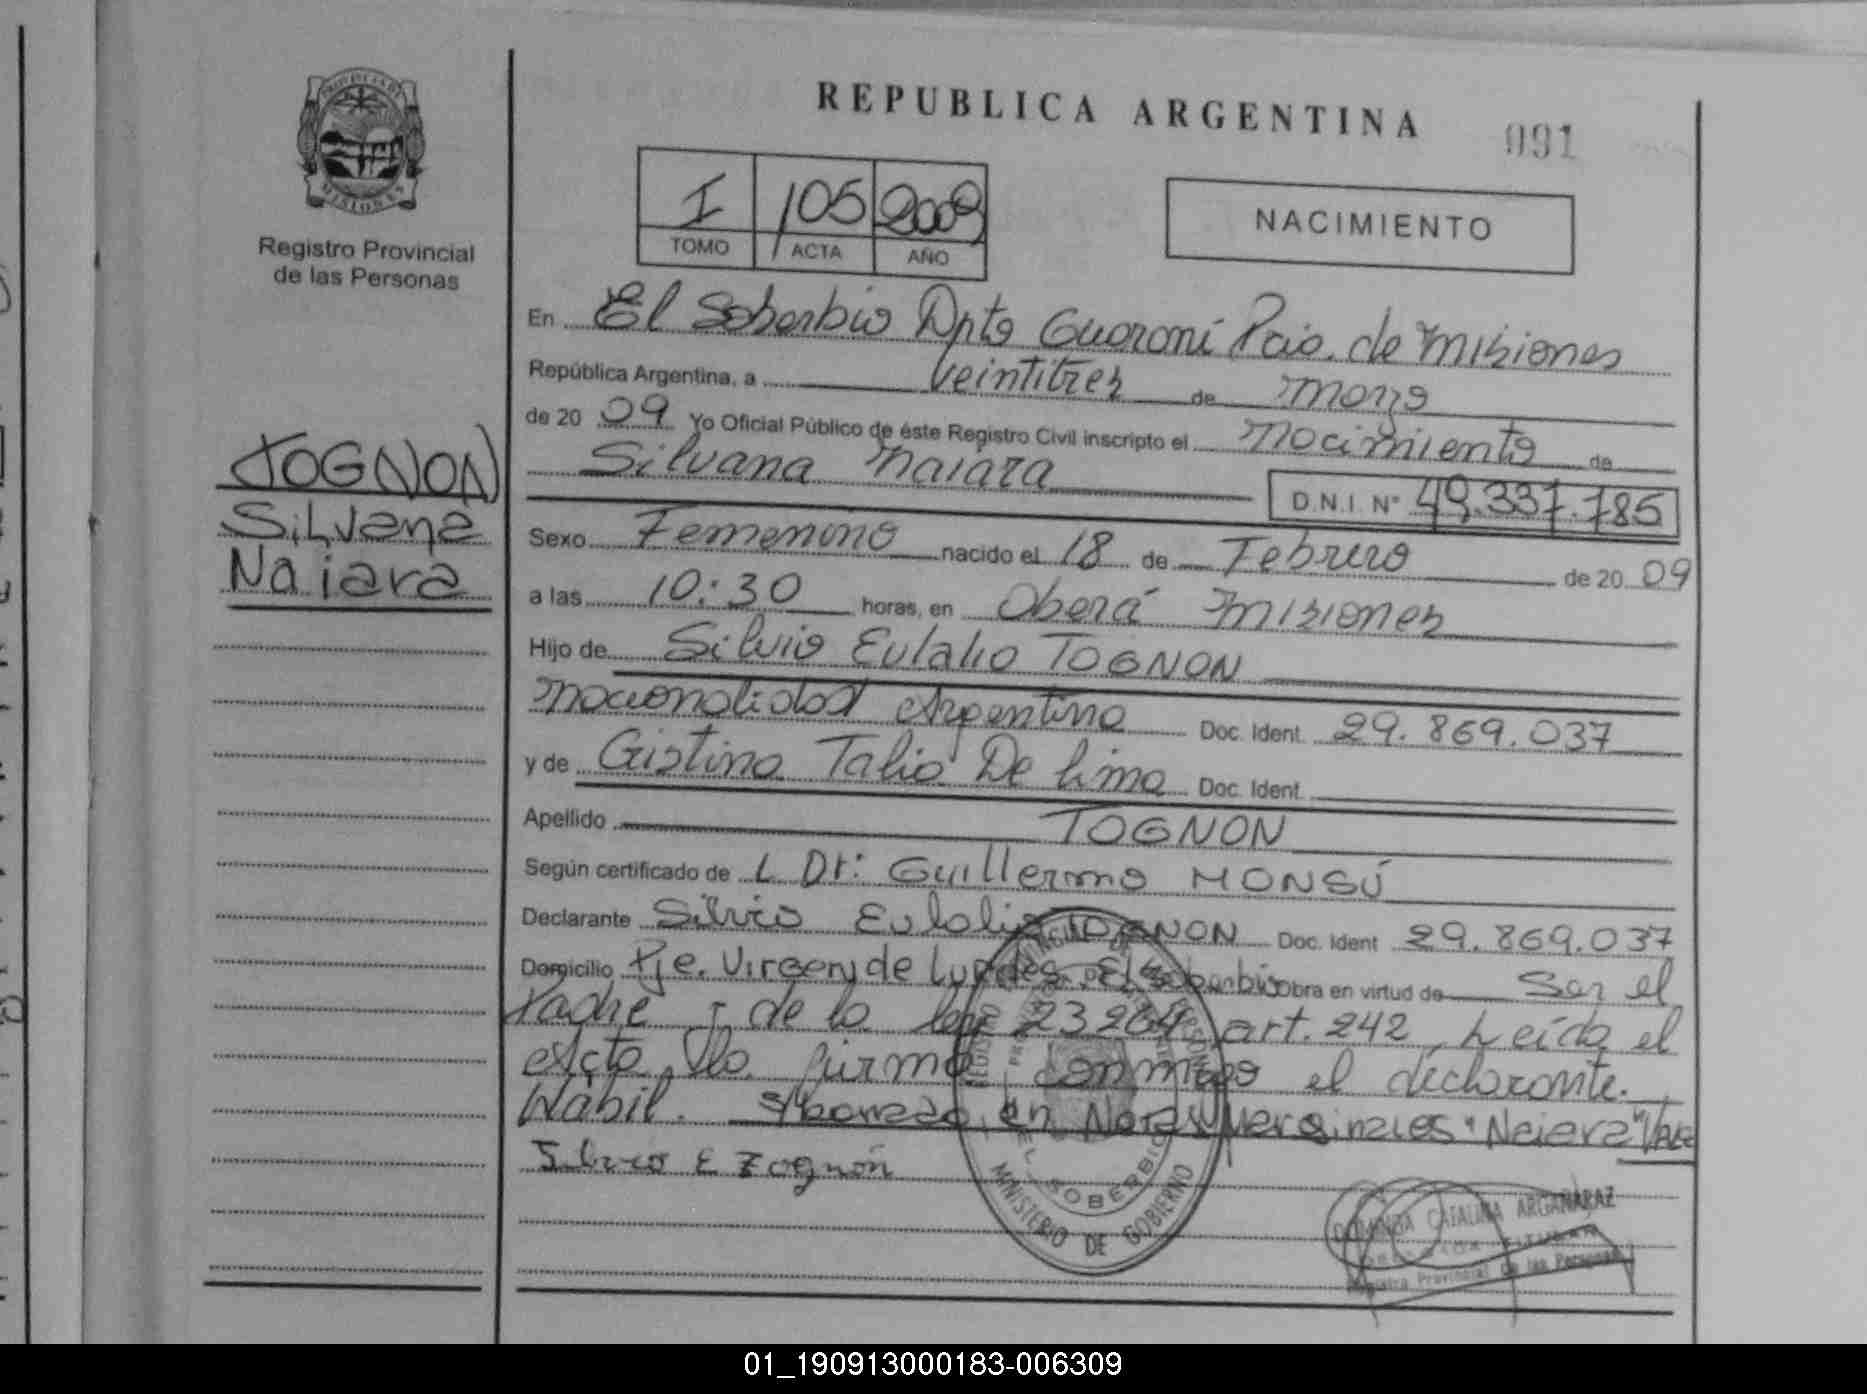 REPUBLICA ARGENTINA
091
PROVINCIA DE
MISIONES
Registro Provincial
de las Personas
I 105 2009
TOMO ACTA AÑO
NACIMIENTO
En El Soberbio Dpto Guaraní Pcia. de Misiones
República Argentina, a veintitres de Marzo
de 20 09 Yo Oficial Público de éste Registro Civil inscripto el Nacimiento de
Silvana Naiara D.N.I. N° 49.337.785
TOGNON
Silvana
Naiara
Sexo Femenino nacido el 18 de Febrero de 20 09
a las 10:30 horas, en Oberá Misiones
Hijo de Silvio Eulalio TOGNON
Nacionalidad Argentina Doc. Ident. 29.869.037
y de Cristina Talia De Lima Doc. Ident.
Apellido TOGNON
Según certificado de L Dr: Guillermo MONSÚ
Declarante Silvio Eulalio TOGNON Doc. Ident 29.869.037
Domicilio Pje. Virgen de Lurdes El Soberbio Obra en virtud de Ser el
Padre y de la ley 23264 art. 242, Leída el
Acta la firma conmigo el declarante.
Habil. S/borrado en Notas Marginales "Naiara" Vale
Silvio E Tognón
EL SOBERBIO
MINISTERIO DE GOBIERNO
DOMINGA CATALINA ARGAÑARAZ
Registro Provincial de las Personas
01_190913000183-006309